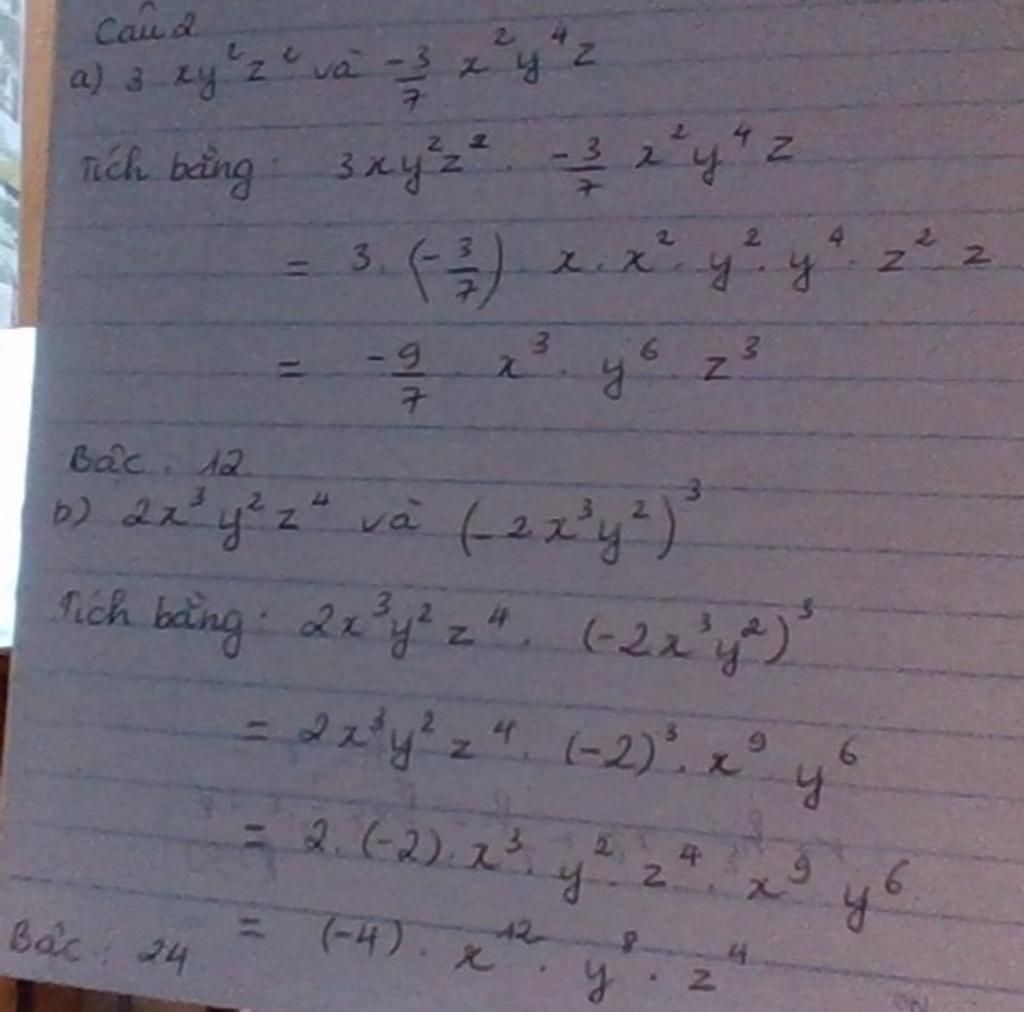 Câu 2
a) 3 xy²z² và -3/7 x²y⁴z
Tích bằng: 3xy²z² . -3/7 x²y⁴z
= 3 . (-3/7) . x . x² . y² . y⁴ . z² z
= -9/7 x³ . y⁶ z³
Bậc : 12
b) 2x³y²z⁴ và (-2x³y²)³
Tích bằng: 2x³y²z⁴ . (-2x³y²)³
= 2x³y²z⁴ . (-2)³ . x⁹ y⁶
= 2 . (-2) . x³ . y² . z⁴ . x⁹ y⁶
= (-4) . x¹² . y⁸ . z⁴
Bậc : 24